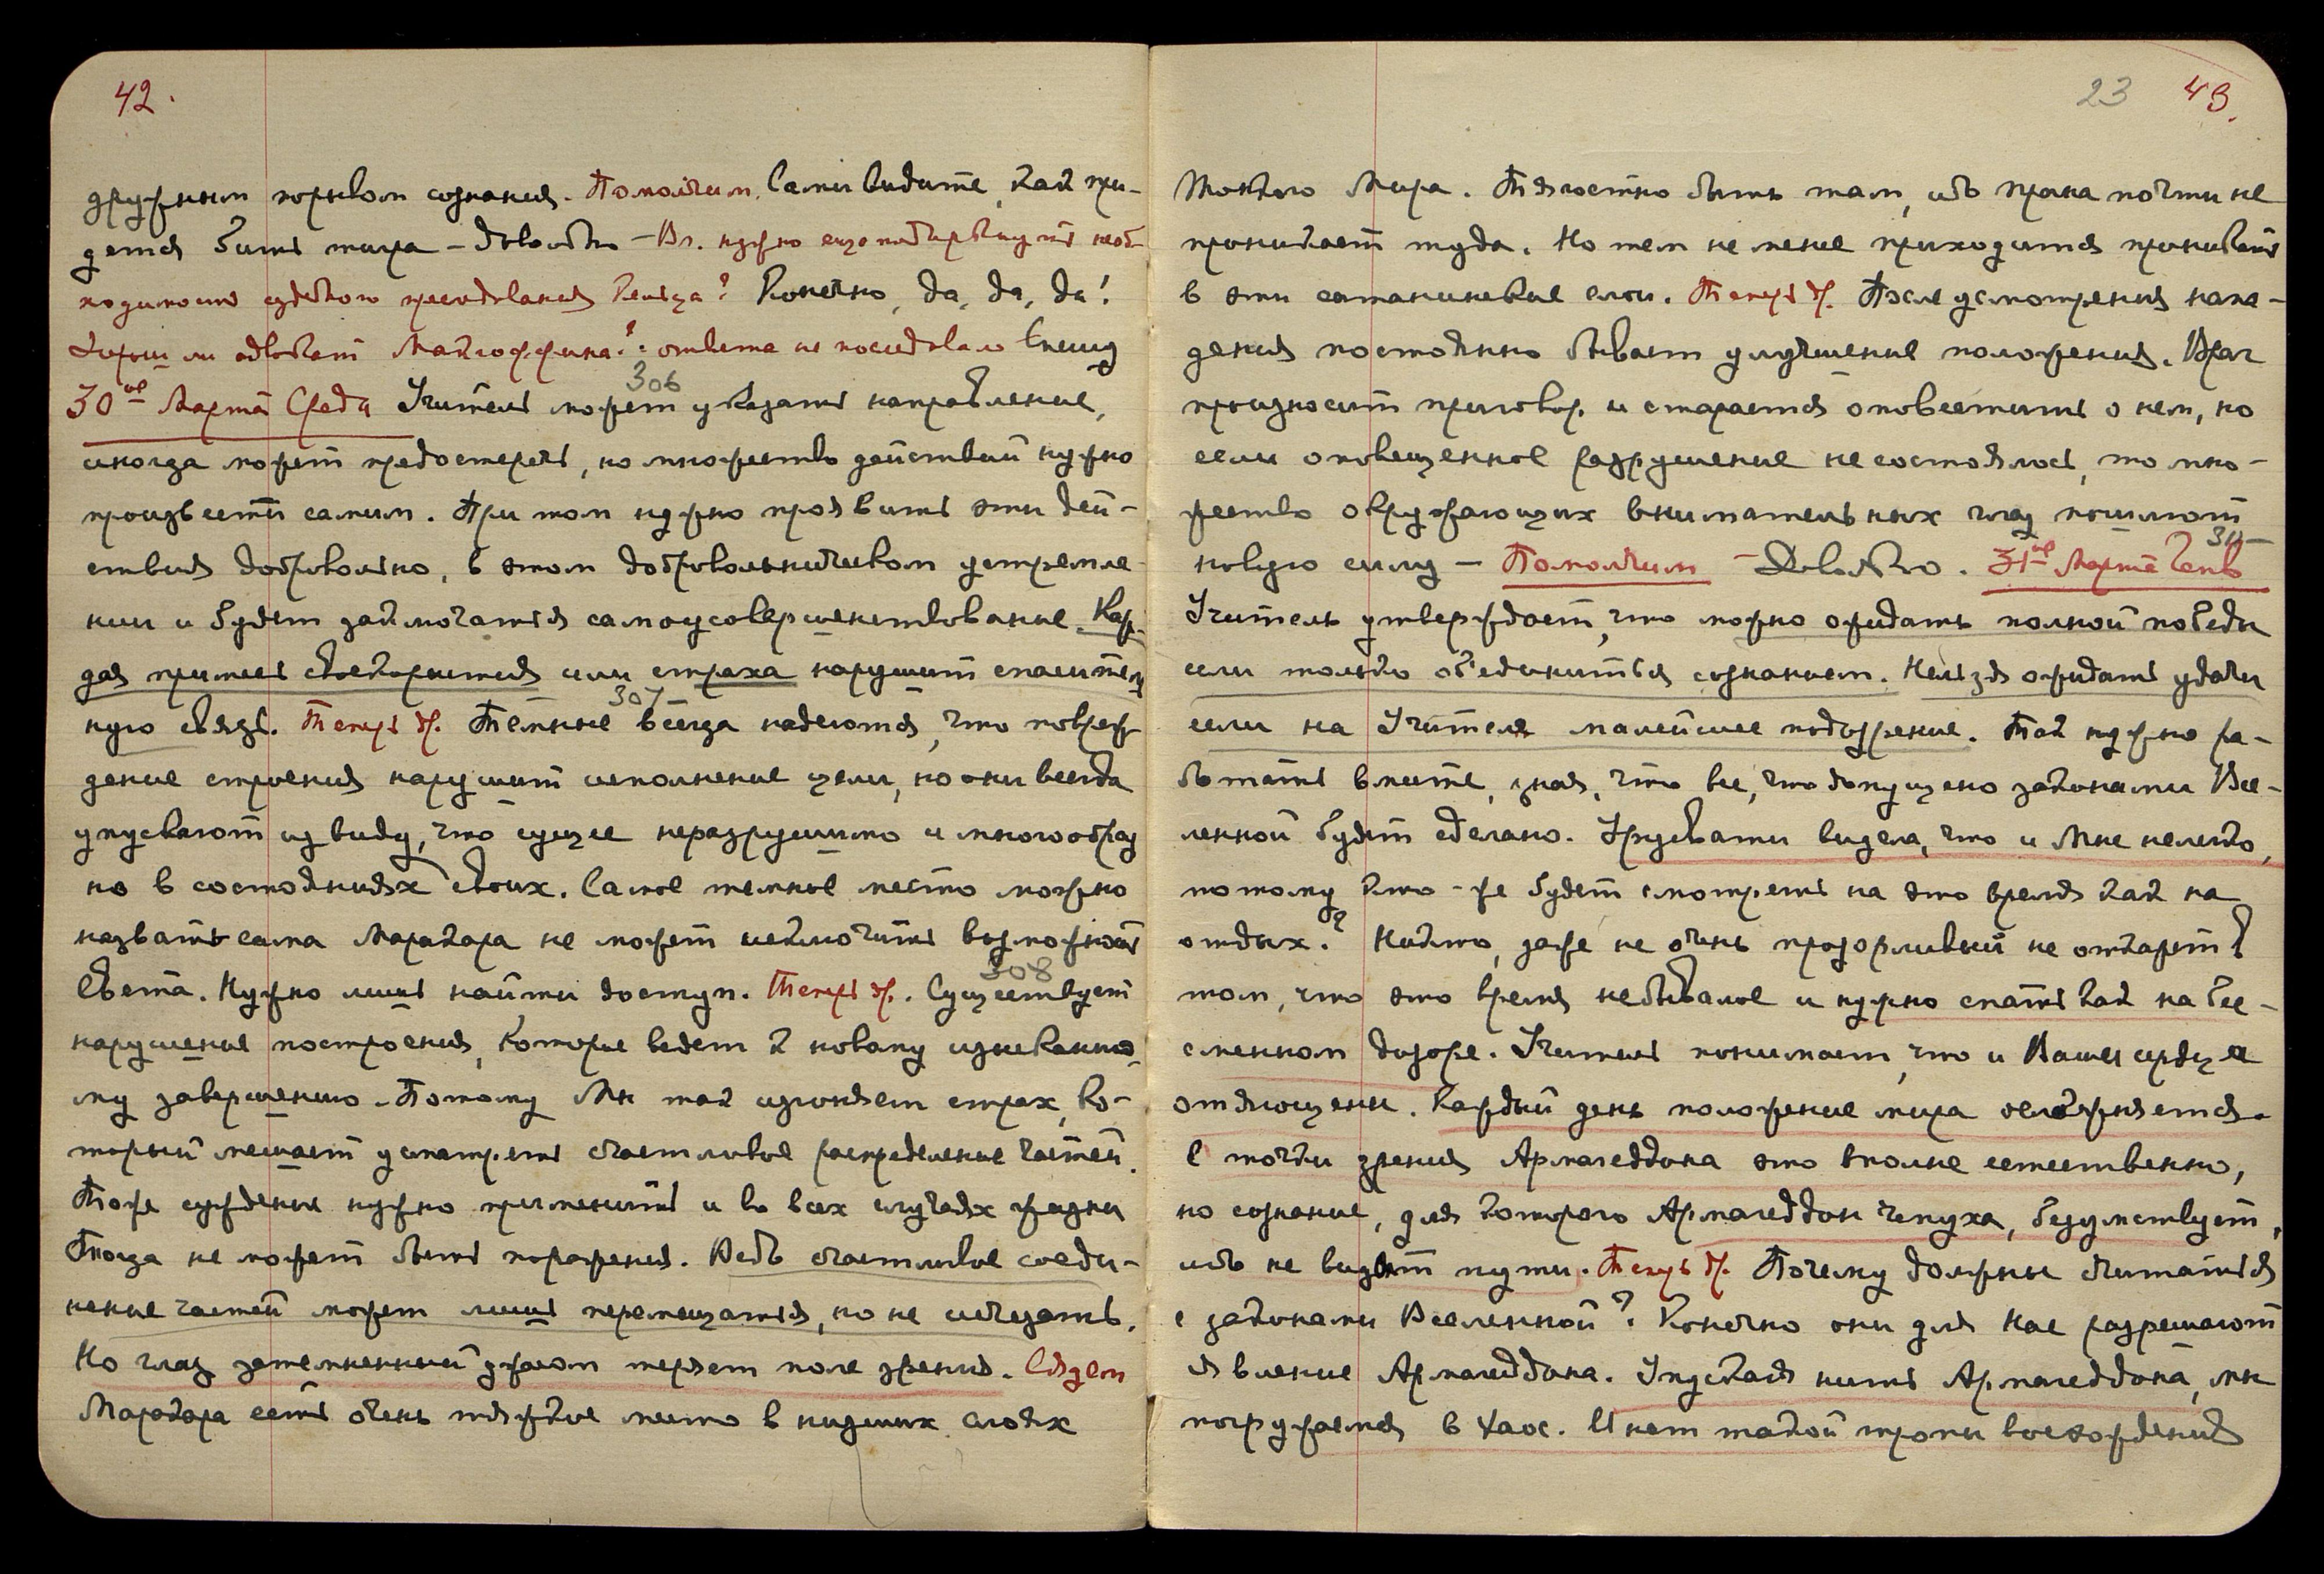 42.
дружным порывом сознания. Помолчим. Сами видите, как при-
дется бить тигра – Довольно – Вл. нужно еще подчеркнуть необ-
ходимость судебного преследования Кельца? Конечно, да, да, да!
Хорош ли адвокат ? ответа не последовало Спешу
30ое Марта Среда Учитель может указать направление,
306
иногда может предостеречь, но множество действий нужно
произвести самим. При том нужно проявить эти дей-
ствия добровольно, в этом добровольническом устремле-
нии и будет заключаться самоусовершенствование. Каж-
дая примесь своекорыстия или страха нарушит спаситель
ную связь. Теперь др. Тёмные всегда надеются, что повреж
307
дение строения нарушит исполнение цели, но они всегда
упускают из виду, что сущее неразрушимо и многообраз
но в состояниях своих. Самое темное место можно
назвать сама Маракара не может исключить возможност
Света. Нужно лишь найти доступ. Теперь др. Существует
308
нарушение построения, которое ведет к новому изысканно-
му завершению. Потому Мы так изгоняем страх, ко-
торый мешает усмотреть счастливое распределение частей.
Тоже суждение нужно применить и во всех случаях жизни
Тогда не может быть поражения. Ведь счастливое соеди-
нение частей может лишь перемещаться, но не исчезать.
Но глаз затемненный ужасом теряет поле зрения. Сядем
Маракара есть очень тяжкое место в низших слоях
23 43.
Тонкого Мира. Тягостно быть там, ибо прана почти не
проникает туда. Но тем не менее приходится проникать
в эти сатанинские слои. Теперь др. После усмотрения напа-
дения постоянно бывает улучшение положения. Враг
произносит приговор и старается оповестить о нем, но
если оповещенное разрушение не состоялось, то мно-
жество окружающих внимательных глаз поймают
новую силу – Помолчим – Довольно. 31ое Марта Четв
311
Учитель утверждает, что можно ожидать полной победы
если только объединиться сознанием. Нельзя ожидать удачи
если на Учителя малейшее подозрение. Так нужно ра-
ботать вместе, зная, что все, что допущено законами Все-
ленной будет сделано. Урусвати видела, что и Мне нелегко,
потому кто-же будет смотреть на это время как на
отдых? Никто, даже не очень прозорливый не откажет в
том, что это время небывалое и нужно спать как на бес-
сменном дозоре. Учитель понимает, что и Ваши сердца
отягощены. Каждый день положение мира осложняется.
С точки зрения Армагеддона это вполне естественно,
но сознание, для которого Армагеддон чепуха, безумствует,
ибо не видит пути. Теперь др. Почему должны считаться
с законами Вселенной? Конечно они для Нас разрешают
явление Армагеддона. Упуская нить Армагеддона, мы
погружаемся в Хаос. И нет такой тропы восхождения